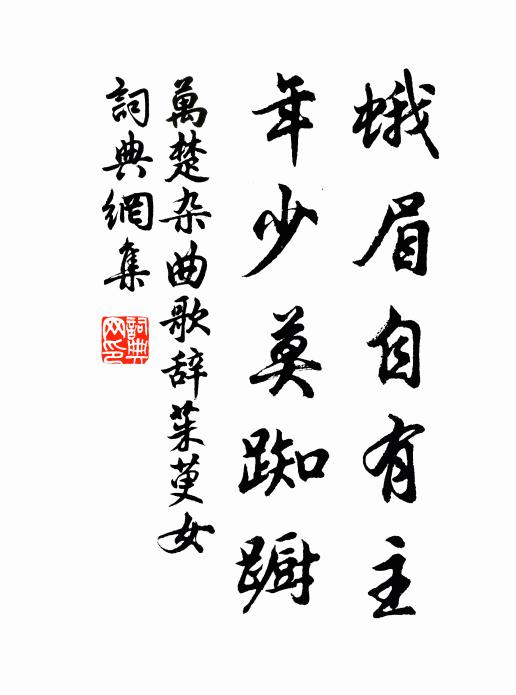 蛾眉自有主
年少莫踟蹰
萬楚杂曲歌辞茱萸女
詞典網集
詞典网印